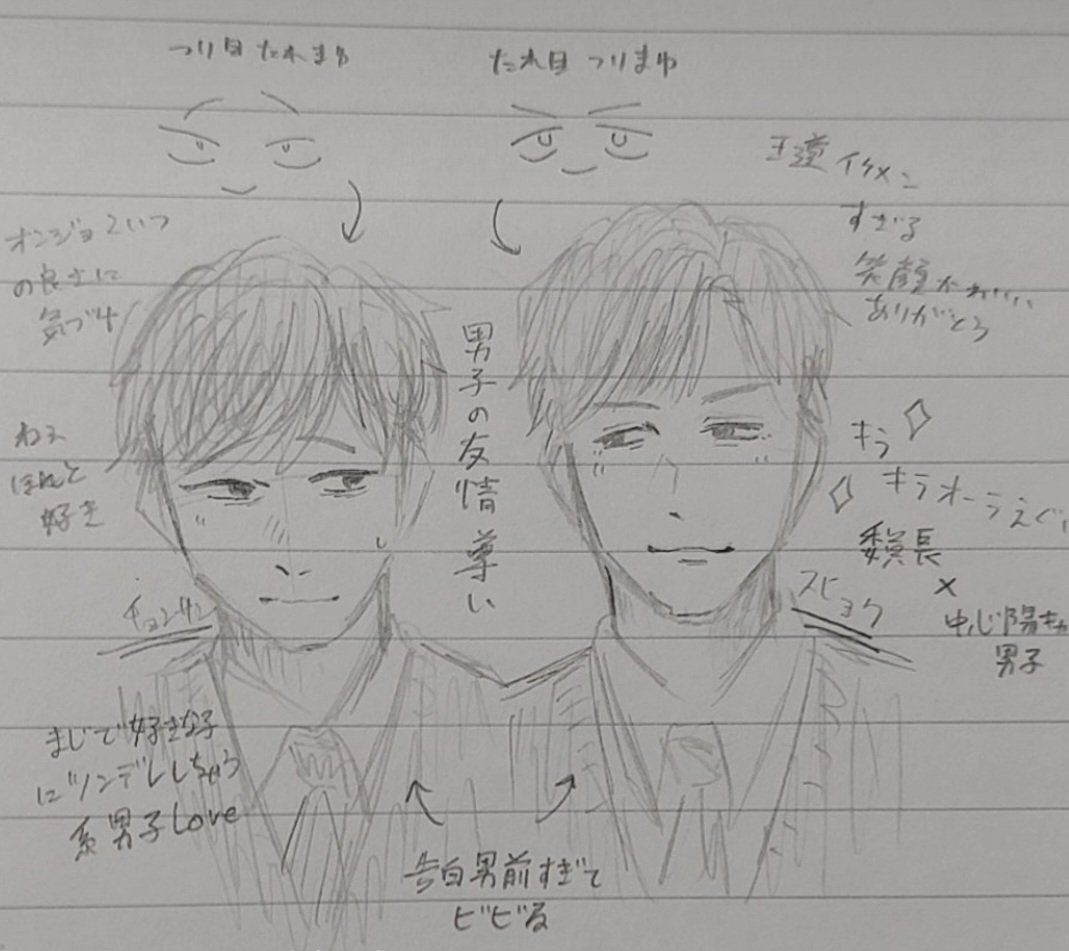 つり目たれまゆ
たれ目つりまゆ
王道イケメン
すぎる
笑顔かわいい
ありがとう
オンジョこいつ
の良さに
気づけ
男子の友情尊い
ねえ
ほんと
好き
キラ
キラオーラえぐい
委員長
×
中心陽キャ
男子
チョンサン
スヒョク
まじで好きな子
にツンデレしちゃう
系男子Love
告白男前すぎて
ビビる